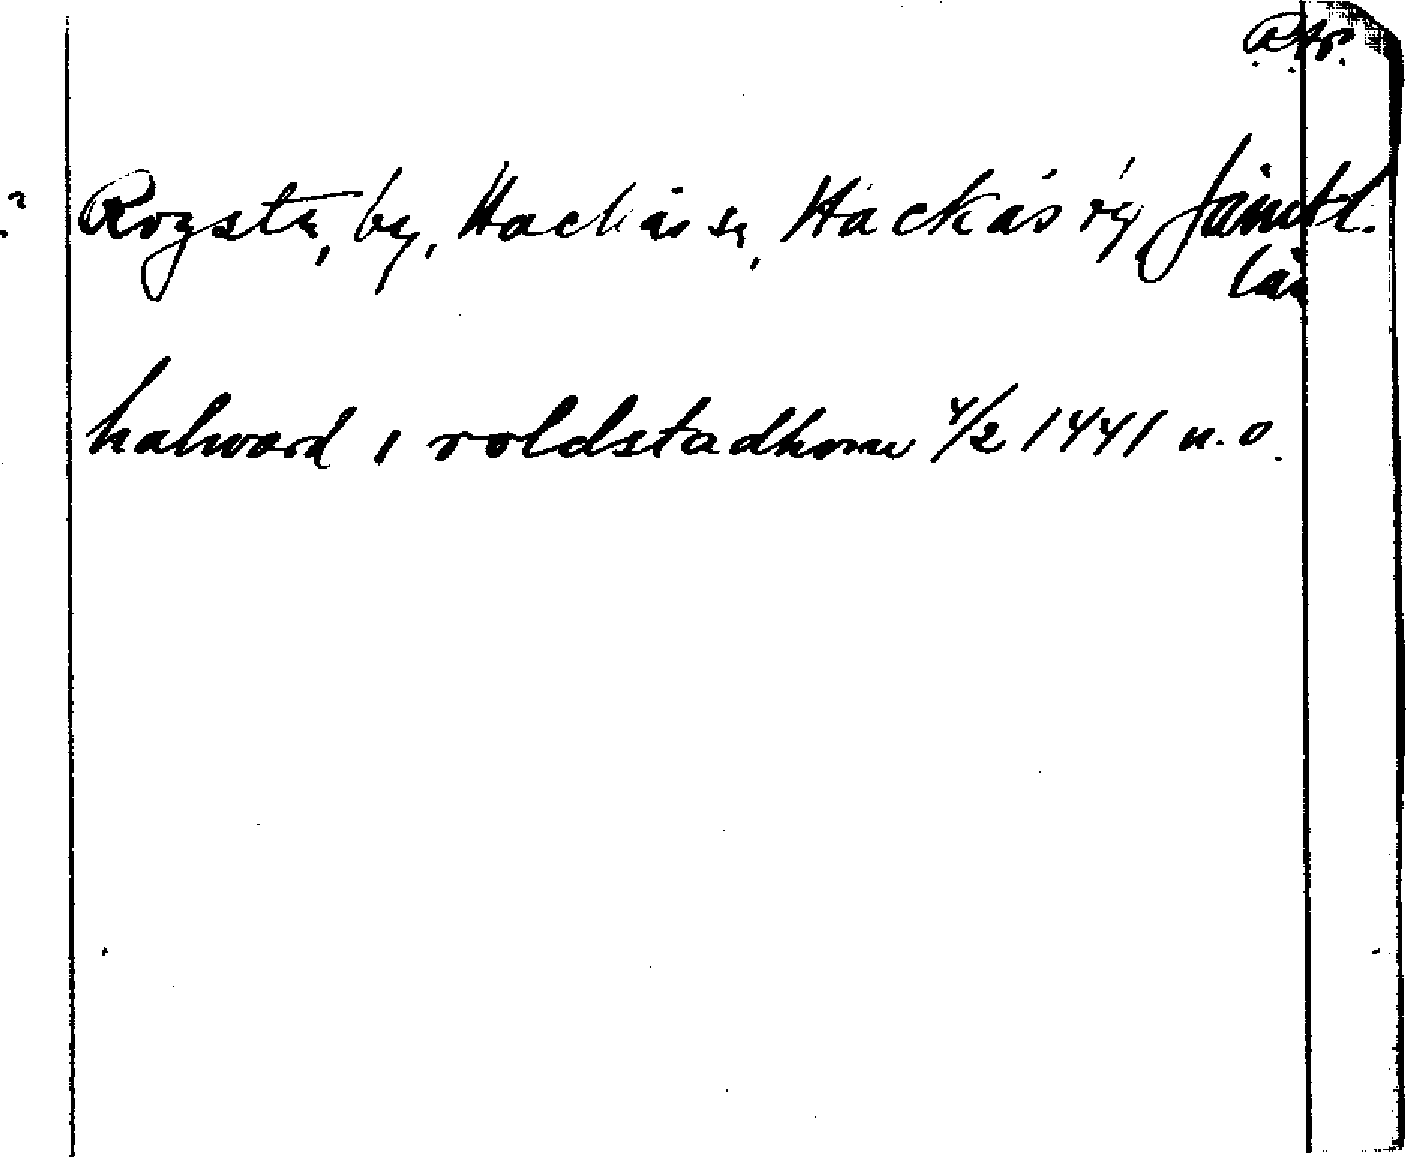 R.A.P.
Rogsta, by, Hackås sn, Hackås rg Jämtl.
län
halward i roldstadhome 4/2 1441 n.o.